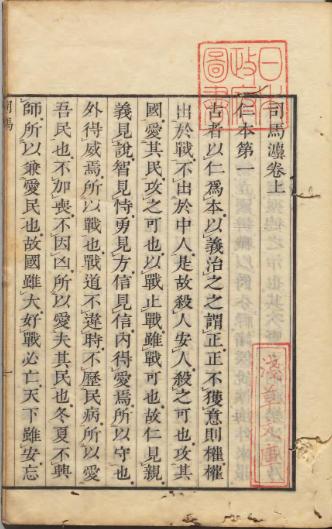 日本政府圖書
司馬灋卷上
仁本第一
古者以仁爲本以義治之之謂正正不獲意則權權
出於戰不出於中人是故殺人安人殺之可也攻其
國愛其民攻之可也以戰止戰雖戰可也故仁見親
義見說智見恃勇見方信見信內得愛焉所以守也
外得威焉所以戰也戰道不違時不歷民病所以愛
吾民也不加喪不因凶所以愛夫其民也冬夏不興
師所以兼愛民也故國雖大好戰必亡天下雖安忘
淺草文庫